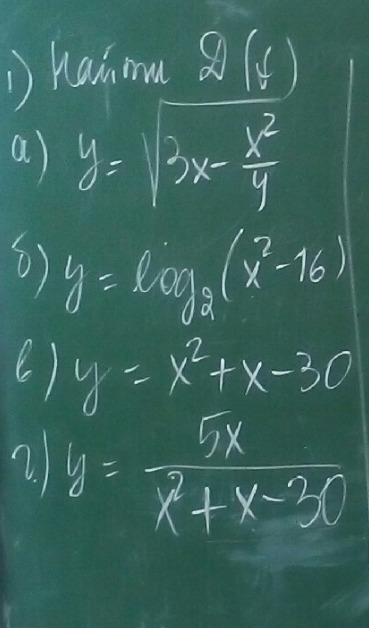 1) Найти D(f)
а) y = √(3x - x²/4)
б) y = log₂(x² - 16)
в) y = x² + x - 30
г) y = 5x/(x² + x - 30)